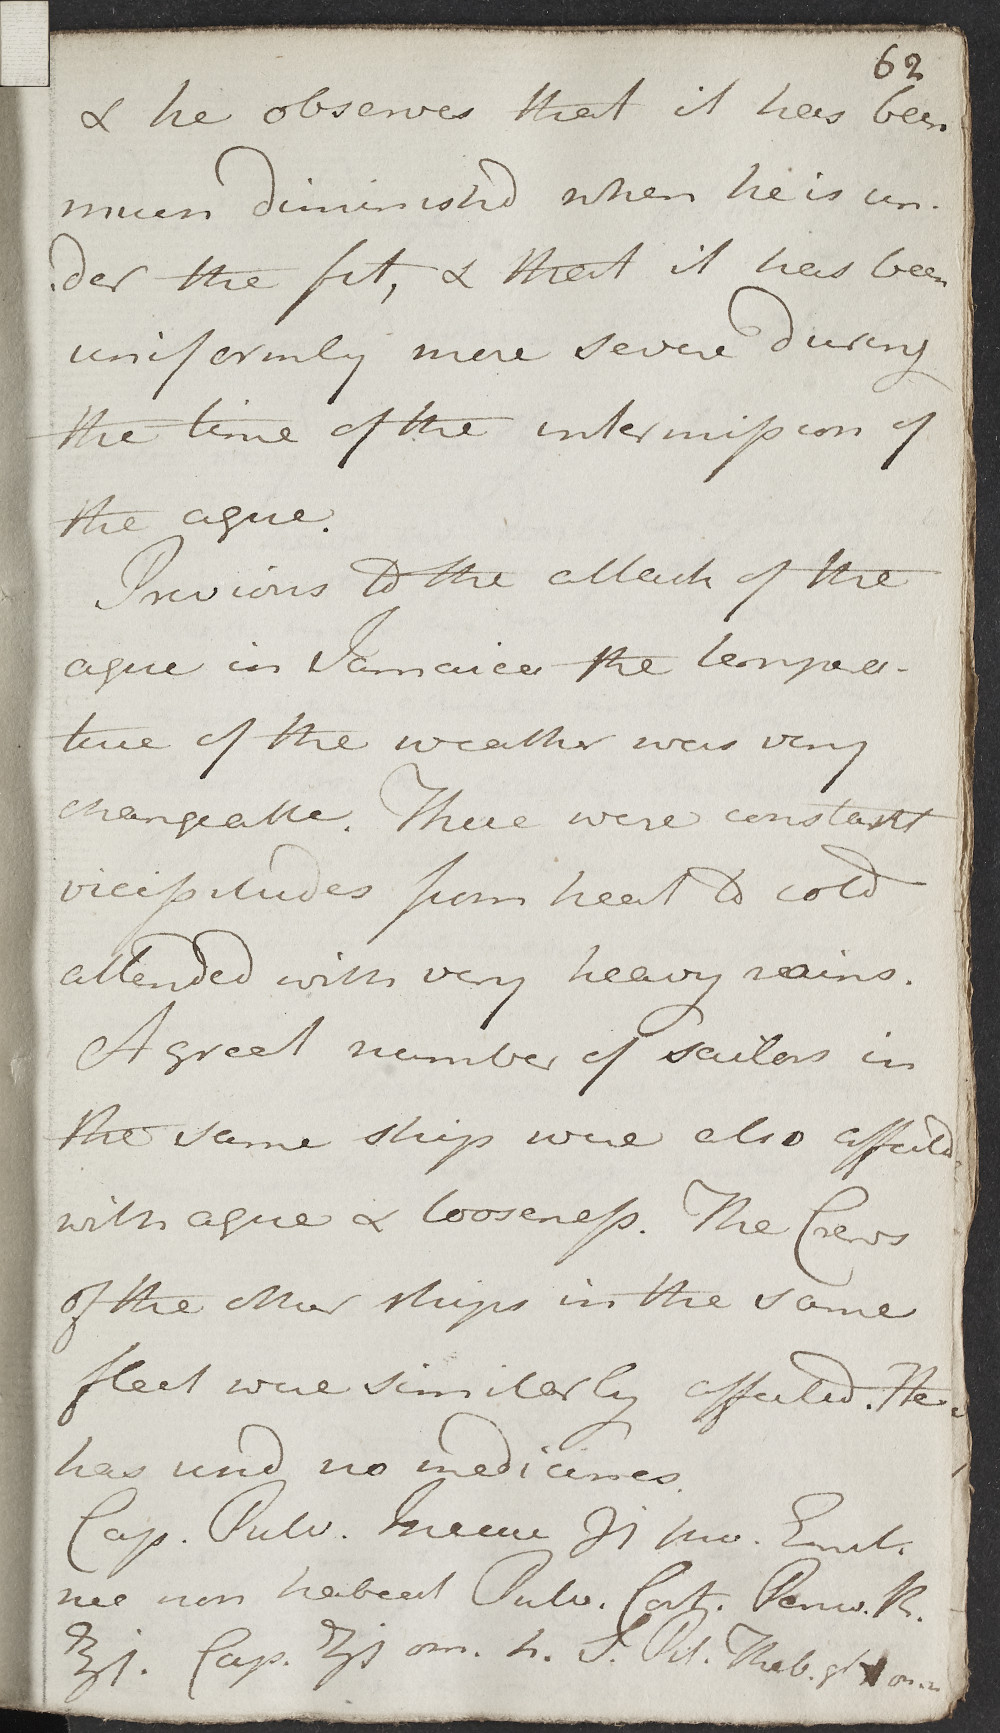 62
& he observes that it has been
much diminish'd when he is un-
der the fit, & that it has been
uniformly more severe during
the time of the intermission of
the ague.
Previous to the attack of the
ague in Jamaica the tempera-
ture of the weather was very
changeable. There were constant
vicissitudes from heat to cold
attended with very heavy rains.
A great number of sailors in
the same ship were also affected
with ague & looseness. The Crews
of the other ships in the same
fleet were similarly affected. He
has used no medicines.
Cap. Pulv. ʒj pro. Emet.
nec non habeat Pulv. Cort. Peruv. R.
℥j. Cap. ʒj om. h. S. Pil. Theb. gr